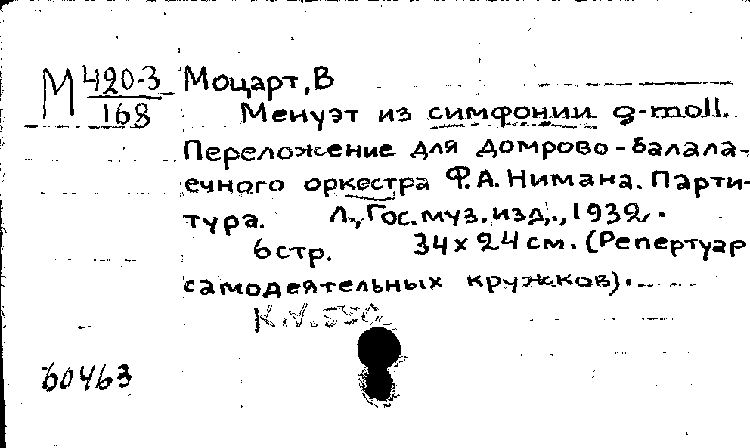 М 420-3
168
Моцарт, В
Менуэт из симфонии g-moll.
Переложение для домрово-балала-
ечного оркестра Ф.А. Нимана. Парти-
тура. Л., Гос. муз. изд., 1932.
6 стр. 34 х 24 см. (Репертуар
самодеятельных кружков).
K.V. 550
60463